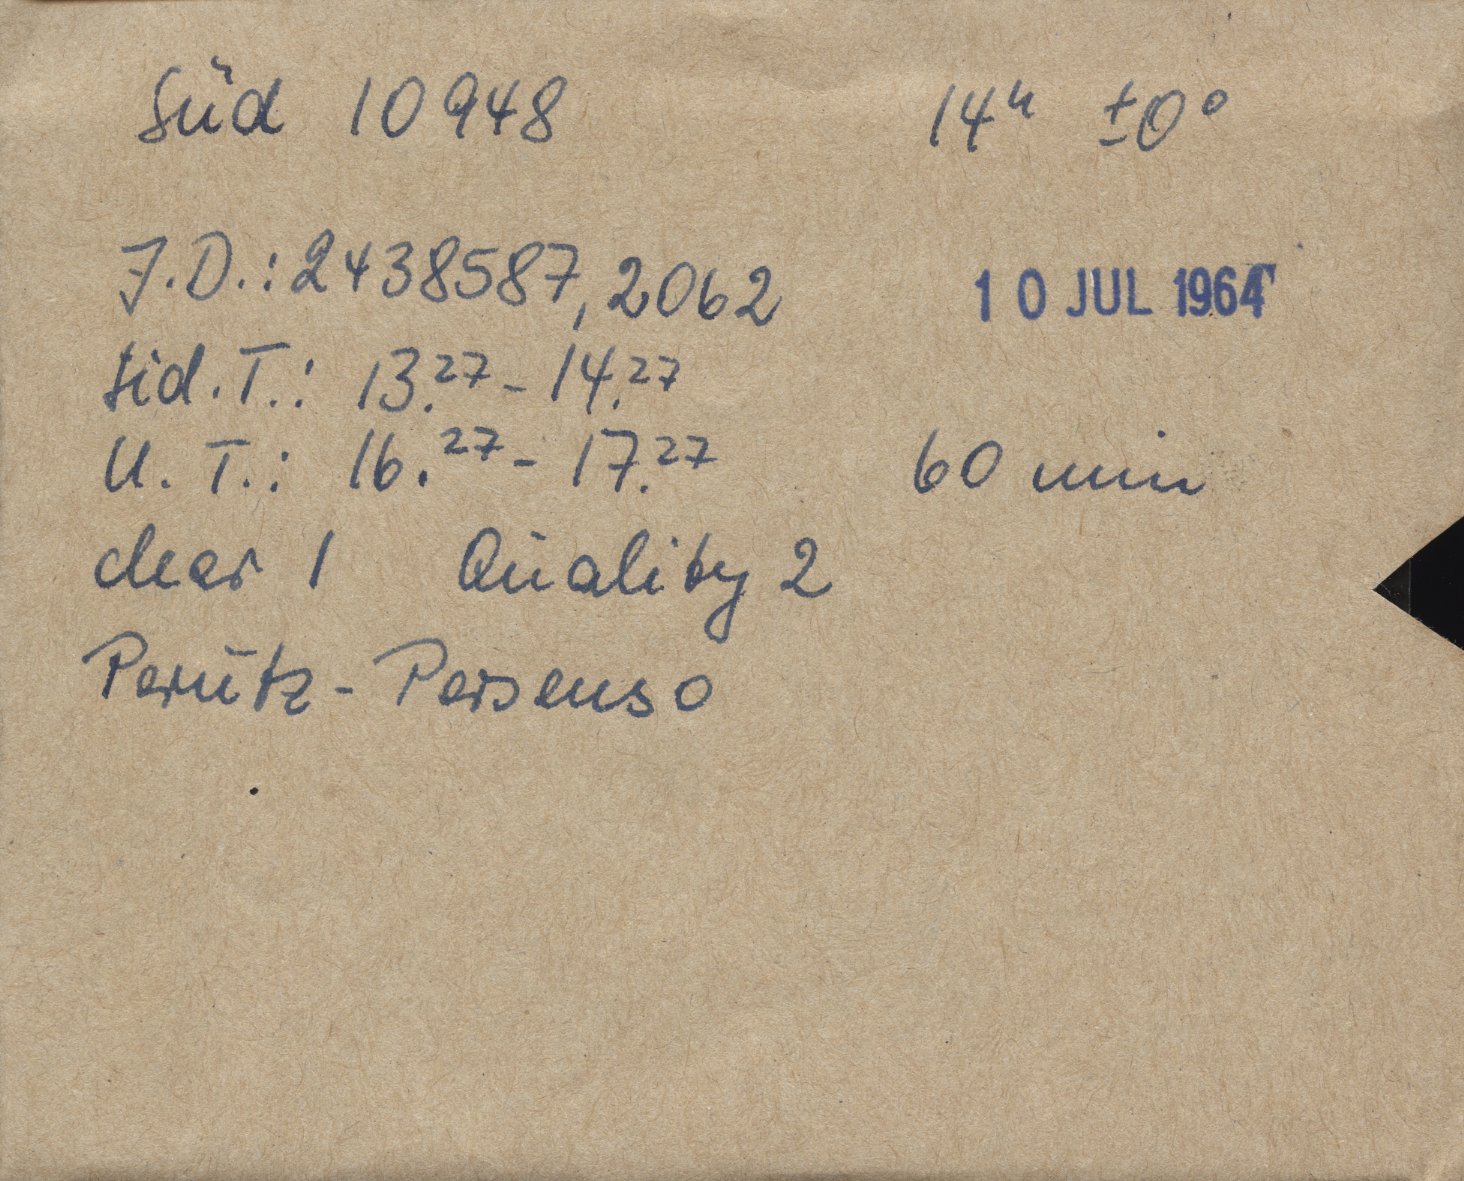 Süd 10948 14ʰ ±0°
J.D.: 2438587,2062 10 JUL 1964
Sid.T.: 13.²⁷ - 14.²⁷
U.T.: 16.²⁷ - 17.²⁷ 60 min
clear 1 Quality 2
Perutz-Persenso